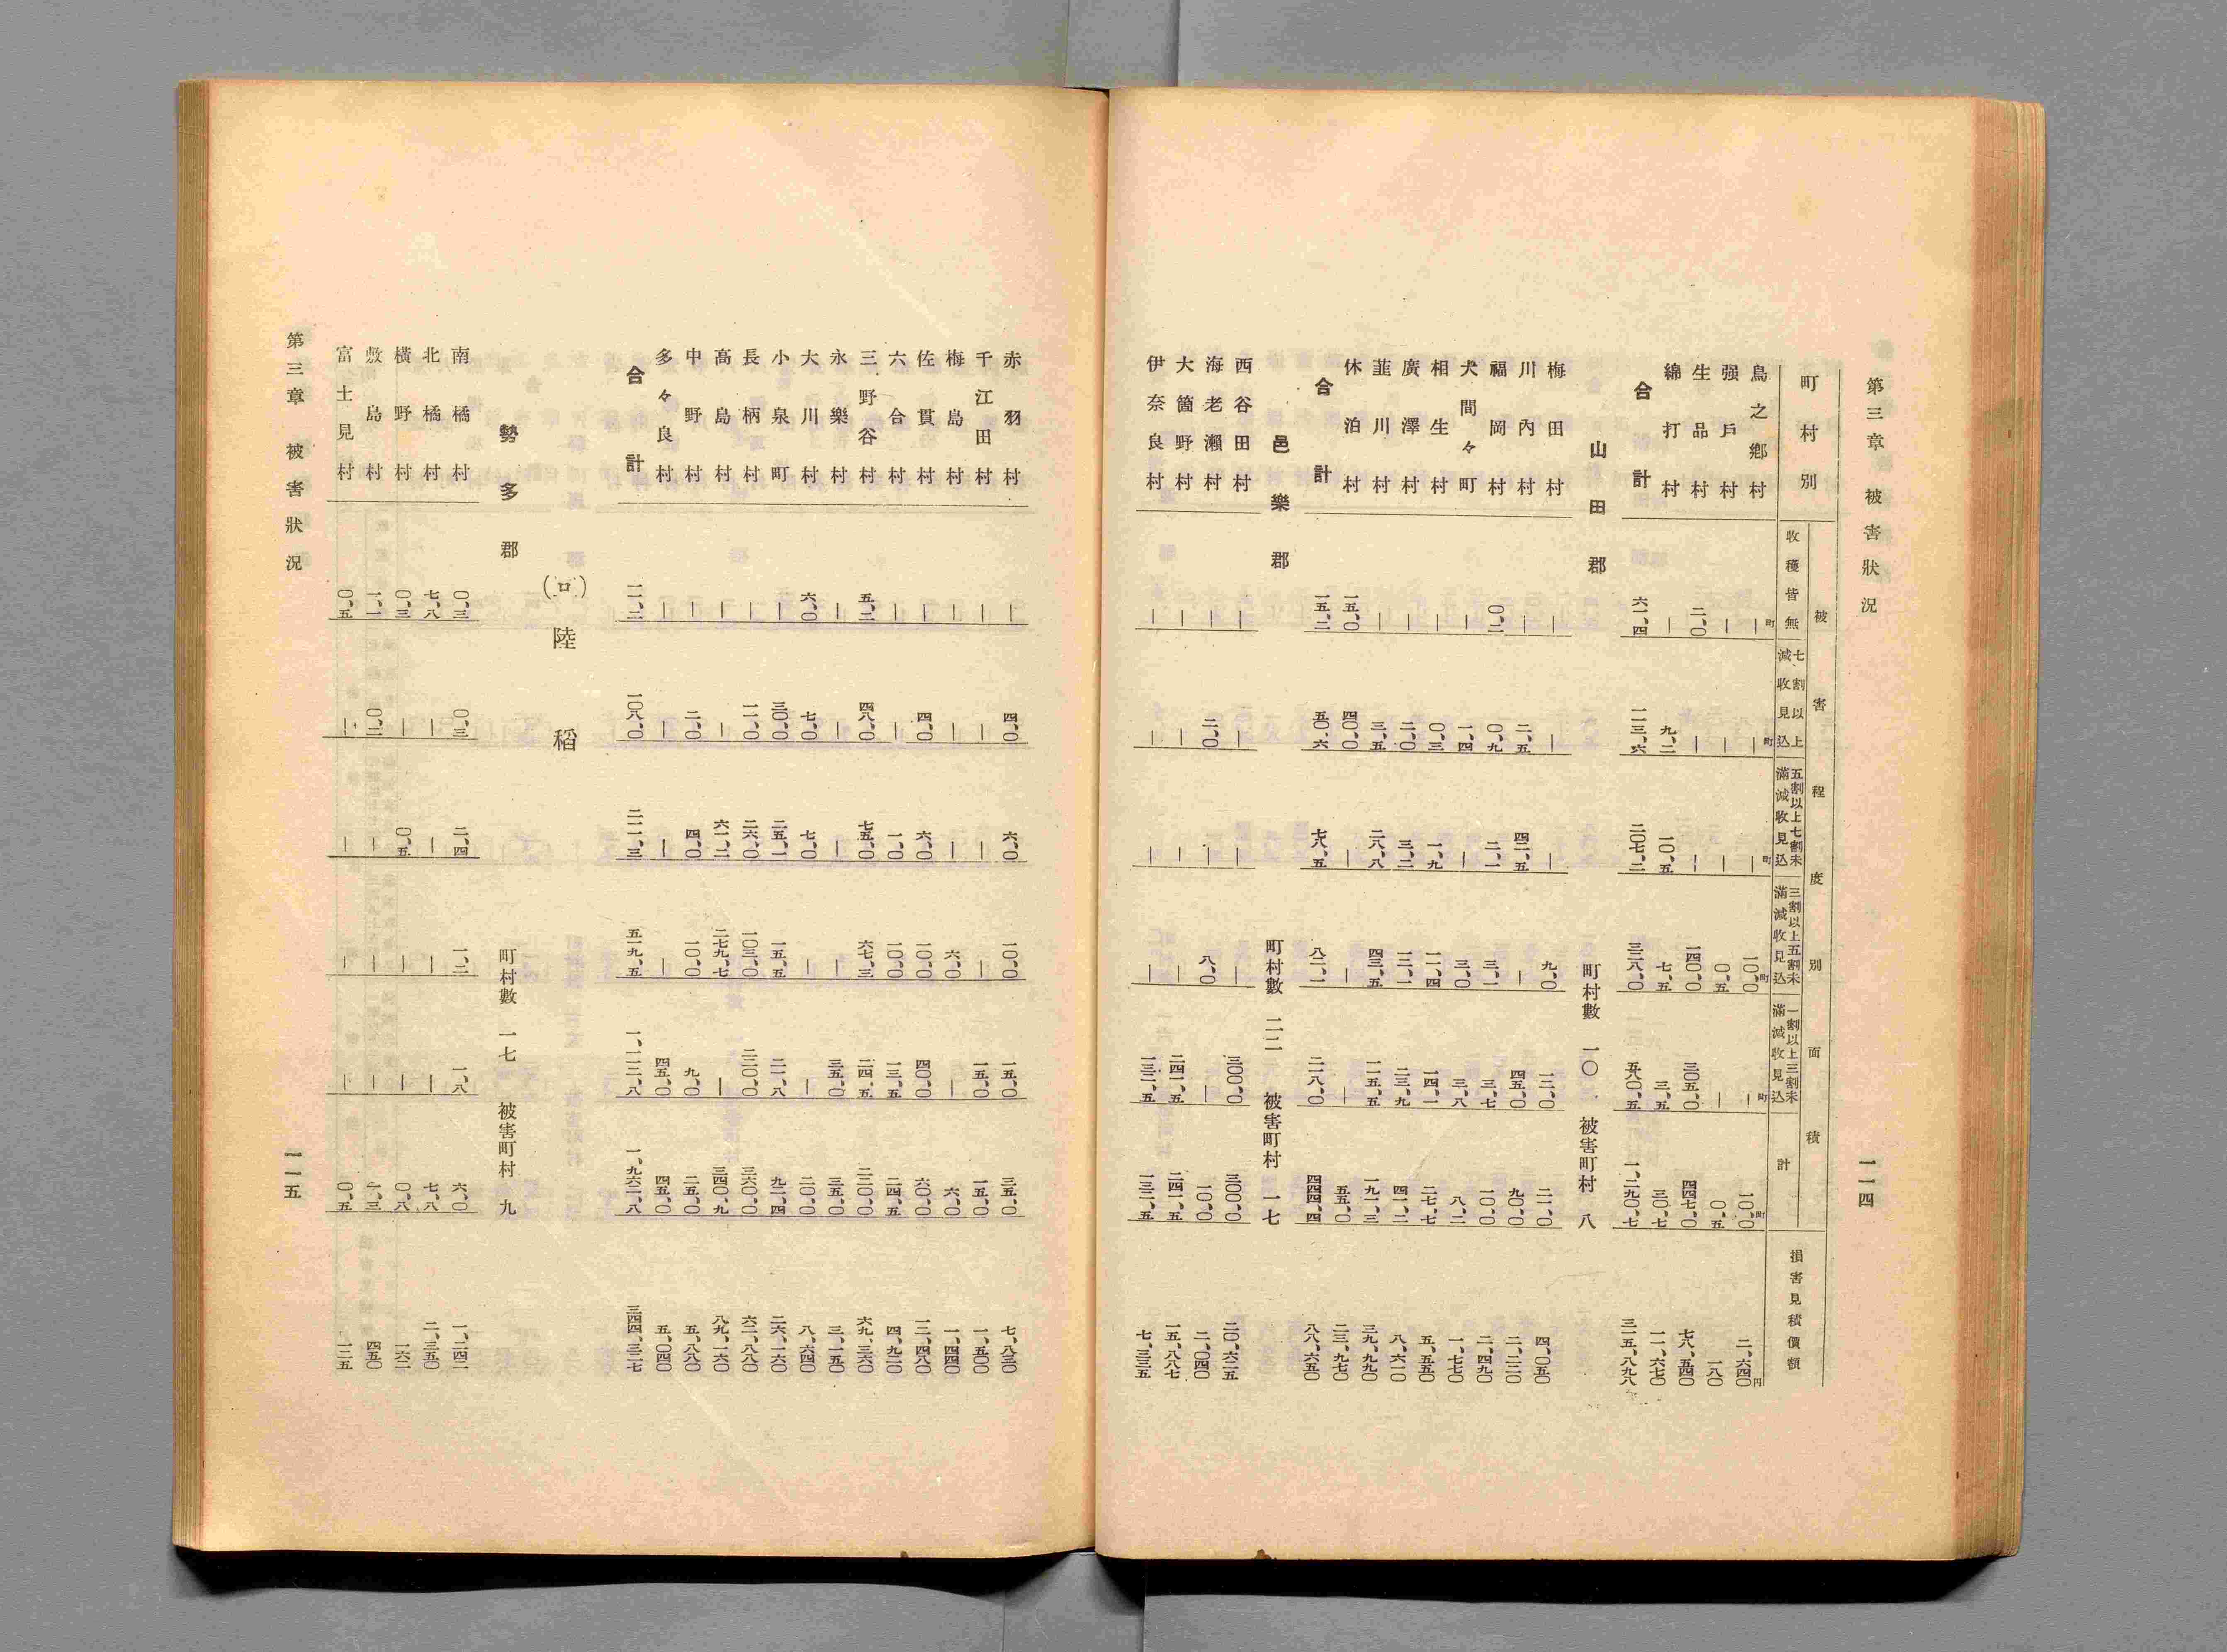 第三章 被害狀況 一一四
町村別 被害程度別面積 損害見積價額
收穫皆無 七割以上減收見込 五割以上七割未滿減收見込 三割以上五割未滿減收見込 一割以上三割未滿減收見込 計
鳥之鄕村 ―町 ―町 ―町 一〇、〇町 ―町 一〇、〇町 二、六四〇円
强戶村 ― ― ― 〇、五 ― 〇、五 一八〇
生品村 二、〇 ― ― 一四〇、〇 三〇五、〇 四四七、〇 七八、五四〇
綿打村 ― 九、二 一〇、五 七、五 三、五 三〇、七 一一、六七〇
合計 六一、四 一一三、六 二〇七、二 三二八、〇 五八〇、五 一、二九〇、七 三一五、八九八
山田郡 町村數 一〇 被害町村 八
梅田村 ― ― ― 九、〇 一二、〇 二一、〇 四、〇五〇
川內村 ― 二、五 四二、五 ― 四五、〇 九〇、〇 二、二二〇
福岡村 〇、二 〇、九 二、一 三、一 三、七 一〇、〇 二、四九〇
犬間々町 ― 一、四 ― 三、〇 三、八 八、二 一、七七〇
相生村 ― 〇、三 一、九 一一、四 一四、一 二七、七 五、五五〇
廣澤村 ― 二、〇 三、二 一二、一 二三、九 四一、二 八、六一〇
韮川村 ― 三、五 二八、八 四三、五 一一五、五 一九一、三 三九、九九〇
休泊村 一五、〇 四〇、〇 ― ― ― 五五、〇 二三、九七〇
合計 一五、二 五〇、六 七八、五 八二、一 二一八、〇 四四四、四 八八、六五〇
邑樂郡 町村數 二二 被害町村 一七
西谷田村 ― ― ― ― 三〇〇、〇 三〇〇、〇 二〇、六二五
海老瀨村 ― 二、〇 ― 八、〇 ― 一〇、〇 二、〇四〇
大箇野村 ― ― ― ― 二四一、五 二四一、五 一五、八八七
伊奈良村 ― ― ― ― 一三二、五 一三二、五 七、三三五
赤羽村 ― 四、〇 六、〇 一〇、〇 一五、〇 三五、〇 七、八三〇
千江田村 ― ― ― ― 一五、〇 一五、〇 一、五〇〇
梅島村 ― ― ― 六、〇 ― 六、〇 一、四四〇
佐貫村 ― 四、〇 六、〇 一〇、〇 四〇、〇 六〇、〇 一二、四八〇
六合村 ― ― 一、〇 一〇、〇 一三、五 二四、五 四、九二〇
三野谷村 五、二 四八、〇 七五、〇 六七、三 二四、五 二二〇、〇 六九、三六〇
永樂村 ― ― ― ― 三五、〇 三五、〇 三、一五〇
大川村 六、〇 七、〇 七、〇 ― ― 二〇、〇 八、六四〇
小泉町 ― 三〇、〇 二五、一 一五、五 二一、八 九二、四 二六、一六〇
長柄村 ― 一一、〇 二六、〇 一〇三、〇 二二〇、〇 三六〇、〇 六二、八八〇
高島村 ― ― 六一、二 二七九、七 ― 三四〇、九 八九、一六〇
中野村 ― 二、〇 四、〇 一〇、〇 九、〇 二五、〇 五、八八〇
多々良村 ― ― ― ― 四五、〇 四五、〇 五、〇四〇
合計 一一、二 一〇八、〇 二一一、三 五一九、五 一、一一二、八 一、九六二、八 三四四、三二七
(ロ) 陸稻
勢多郡 町村數 一七 被害町村 九
南橘村 〇、三 〇、三 二、四 一、二 一、八 六、〇 一、二四二
北橘村 七、八 ― ― ― ― 七、八 二、三五〇
橫野村 〇、三 ― 〇、五 ― ― 〇、八 一六二
敷島村 一、一 〇、二 ― ― ― 一、三 四五〇
富士見村 〇、五 ― ― ― ― 〇、五 一二五
第三章 被害狀況 一一五